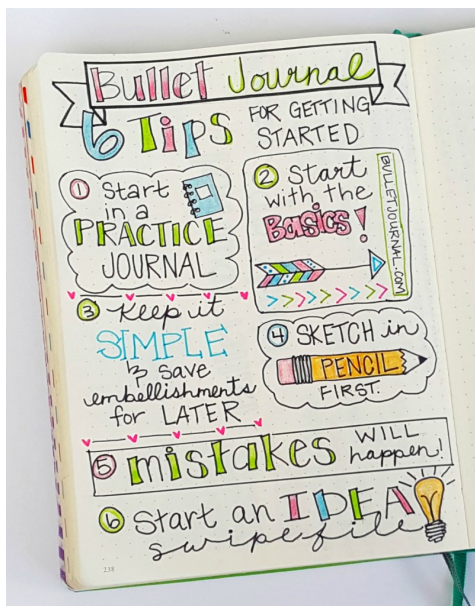 Bullet Journal
6 Tips FOR GETTING
STARTED
1 Start
in a
PRACTICE
JOURNAL
2 Start
with the
Basics!
BULLETJOURNAL.COM
3 Keep it
SIMPLE
& save
embellishments
for LATER
4 SKETCH in
PENCIL
FIRST.
5 mistakes WILL
happen!
6 Start an IDEA
swipefile
238